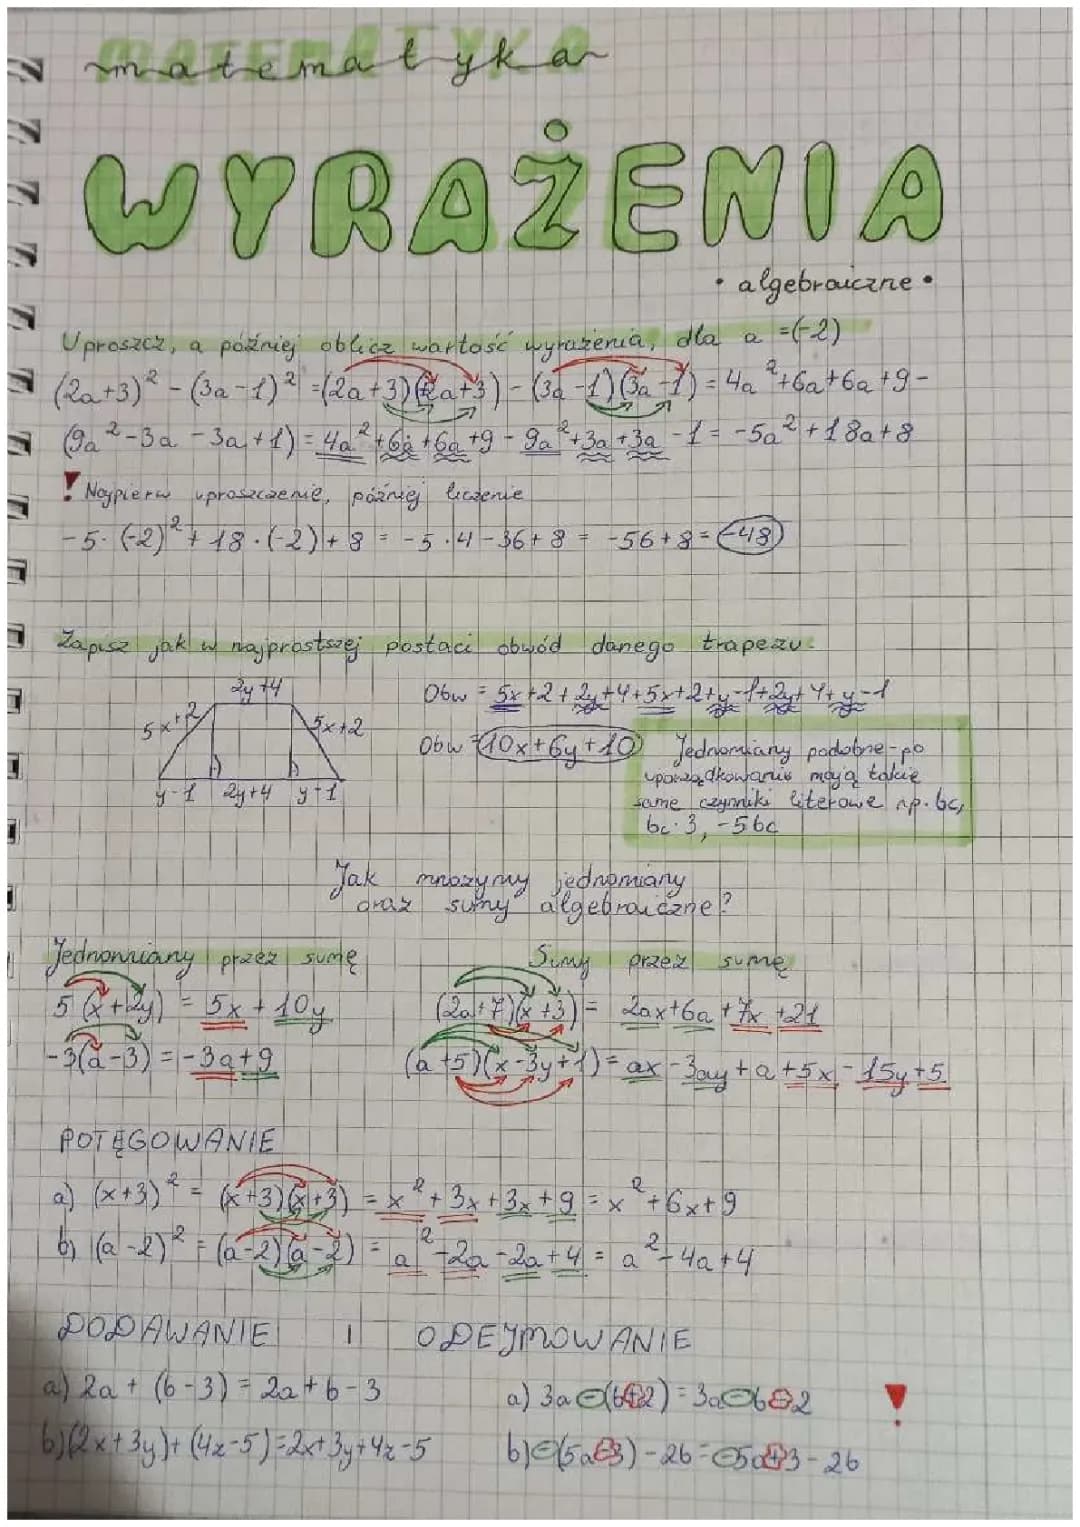 matematyka
WYRAŻENIA
• algebraiczne •
Uproszcz, a później oblicz wartość wyrażenia, dla a =(-2)
(2a+3)² - (3a-1)² =(2a+3)(2a+3) - (3a-1)(3a-1) = 4a²+6a+6a+9-
(9a²-3a-3a+1) = 4a²+6a+6a+9 - 9a²+3a+3a-1 = -5a²+18a+8
! Najpierw uproszczenie, później liczenie
-5·(-2)²+18·(-2)+8 = -5·4-36+8 = -56+8 = -48
Zapisz jak w najprostszej postaci obwód danego trapezu:
2y+4
5x+2
5x+2
y-1 2y+4 y-1
Obw = 5x+2+2y+4+5x+2+y-1+2y+4+y-1
Obw = 10x+6y+10
Jednomiany podobne-po
uporządkowaniu mają takie
same czynniki literowe np. bc,
bc·3, -5bc
Jak mnożymy jednomiany
oraz sumy algebraiczne?
Jednomiany przez sumę
5(x+2y) = 5x+10y
-3(a-3) = -3a+9
Sumy przez sumę
(2a+7)(x+3) = 2ax+6a+7x+21
(a+5)(x-3y+1) = ax-3ay+a+5x-15y+5
POTĘGOWANIE
a) (x+3)² = (x+3)(x+3) = x²+3x+3x+9 = x²+6x+9
b) (a-2)² = (a-2)(a-2) = a²-2a-2a+4 = a²-4a+4
DODAWANIE I ODEJMOWANIE
a) 2a + (b-3) = 2a+b-3
b) (2x+3y)+(4z-5)=2x+3y+4z-5
a) 3a-(b+2) = 3a-b-2 !
b) -(5a-3)-2b = -5a+3-2b